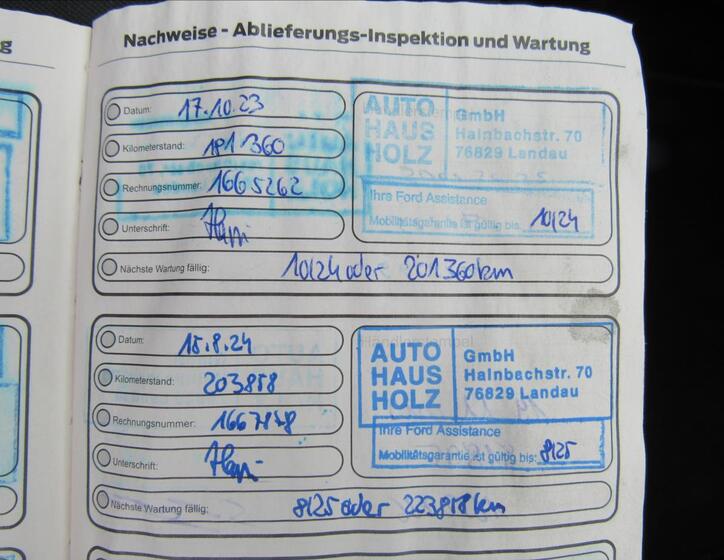 g
Nachweise - Ablieferungs-Inspektion und Wartung
Datum: 17.10.23
Kilometerstand: 181 360
Rechnungsnummer: 1665262
Unterschrift:
AUTO HAUS HOLZ
GmbH
Hainbachstr. 70
76829 Landau
Ihre Ford Assistance
Mobilitätsgarantie ist gültig bis: 10/24
Nächste Wartung fällig: 10/24 oder 201360km
Datum: 15.8.24
Kilometerstand: 203858
Rechnungsnummer:
Unterschrift:
Händlerstempel
AUTO HAUS HOLZ
GmbH
Hainbachstr. 70
76829 Landau
Ihre Ford Assistance
Mobilitätsgarantie ist gültig bis: 8/25
Nächste Wartung fällig: 8/25 oder 223858km